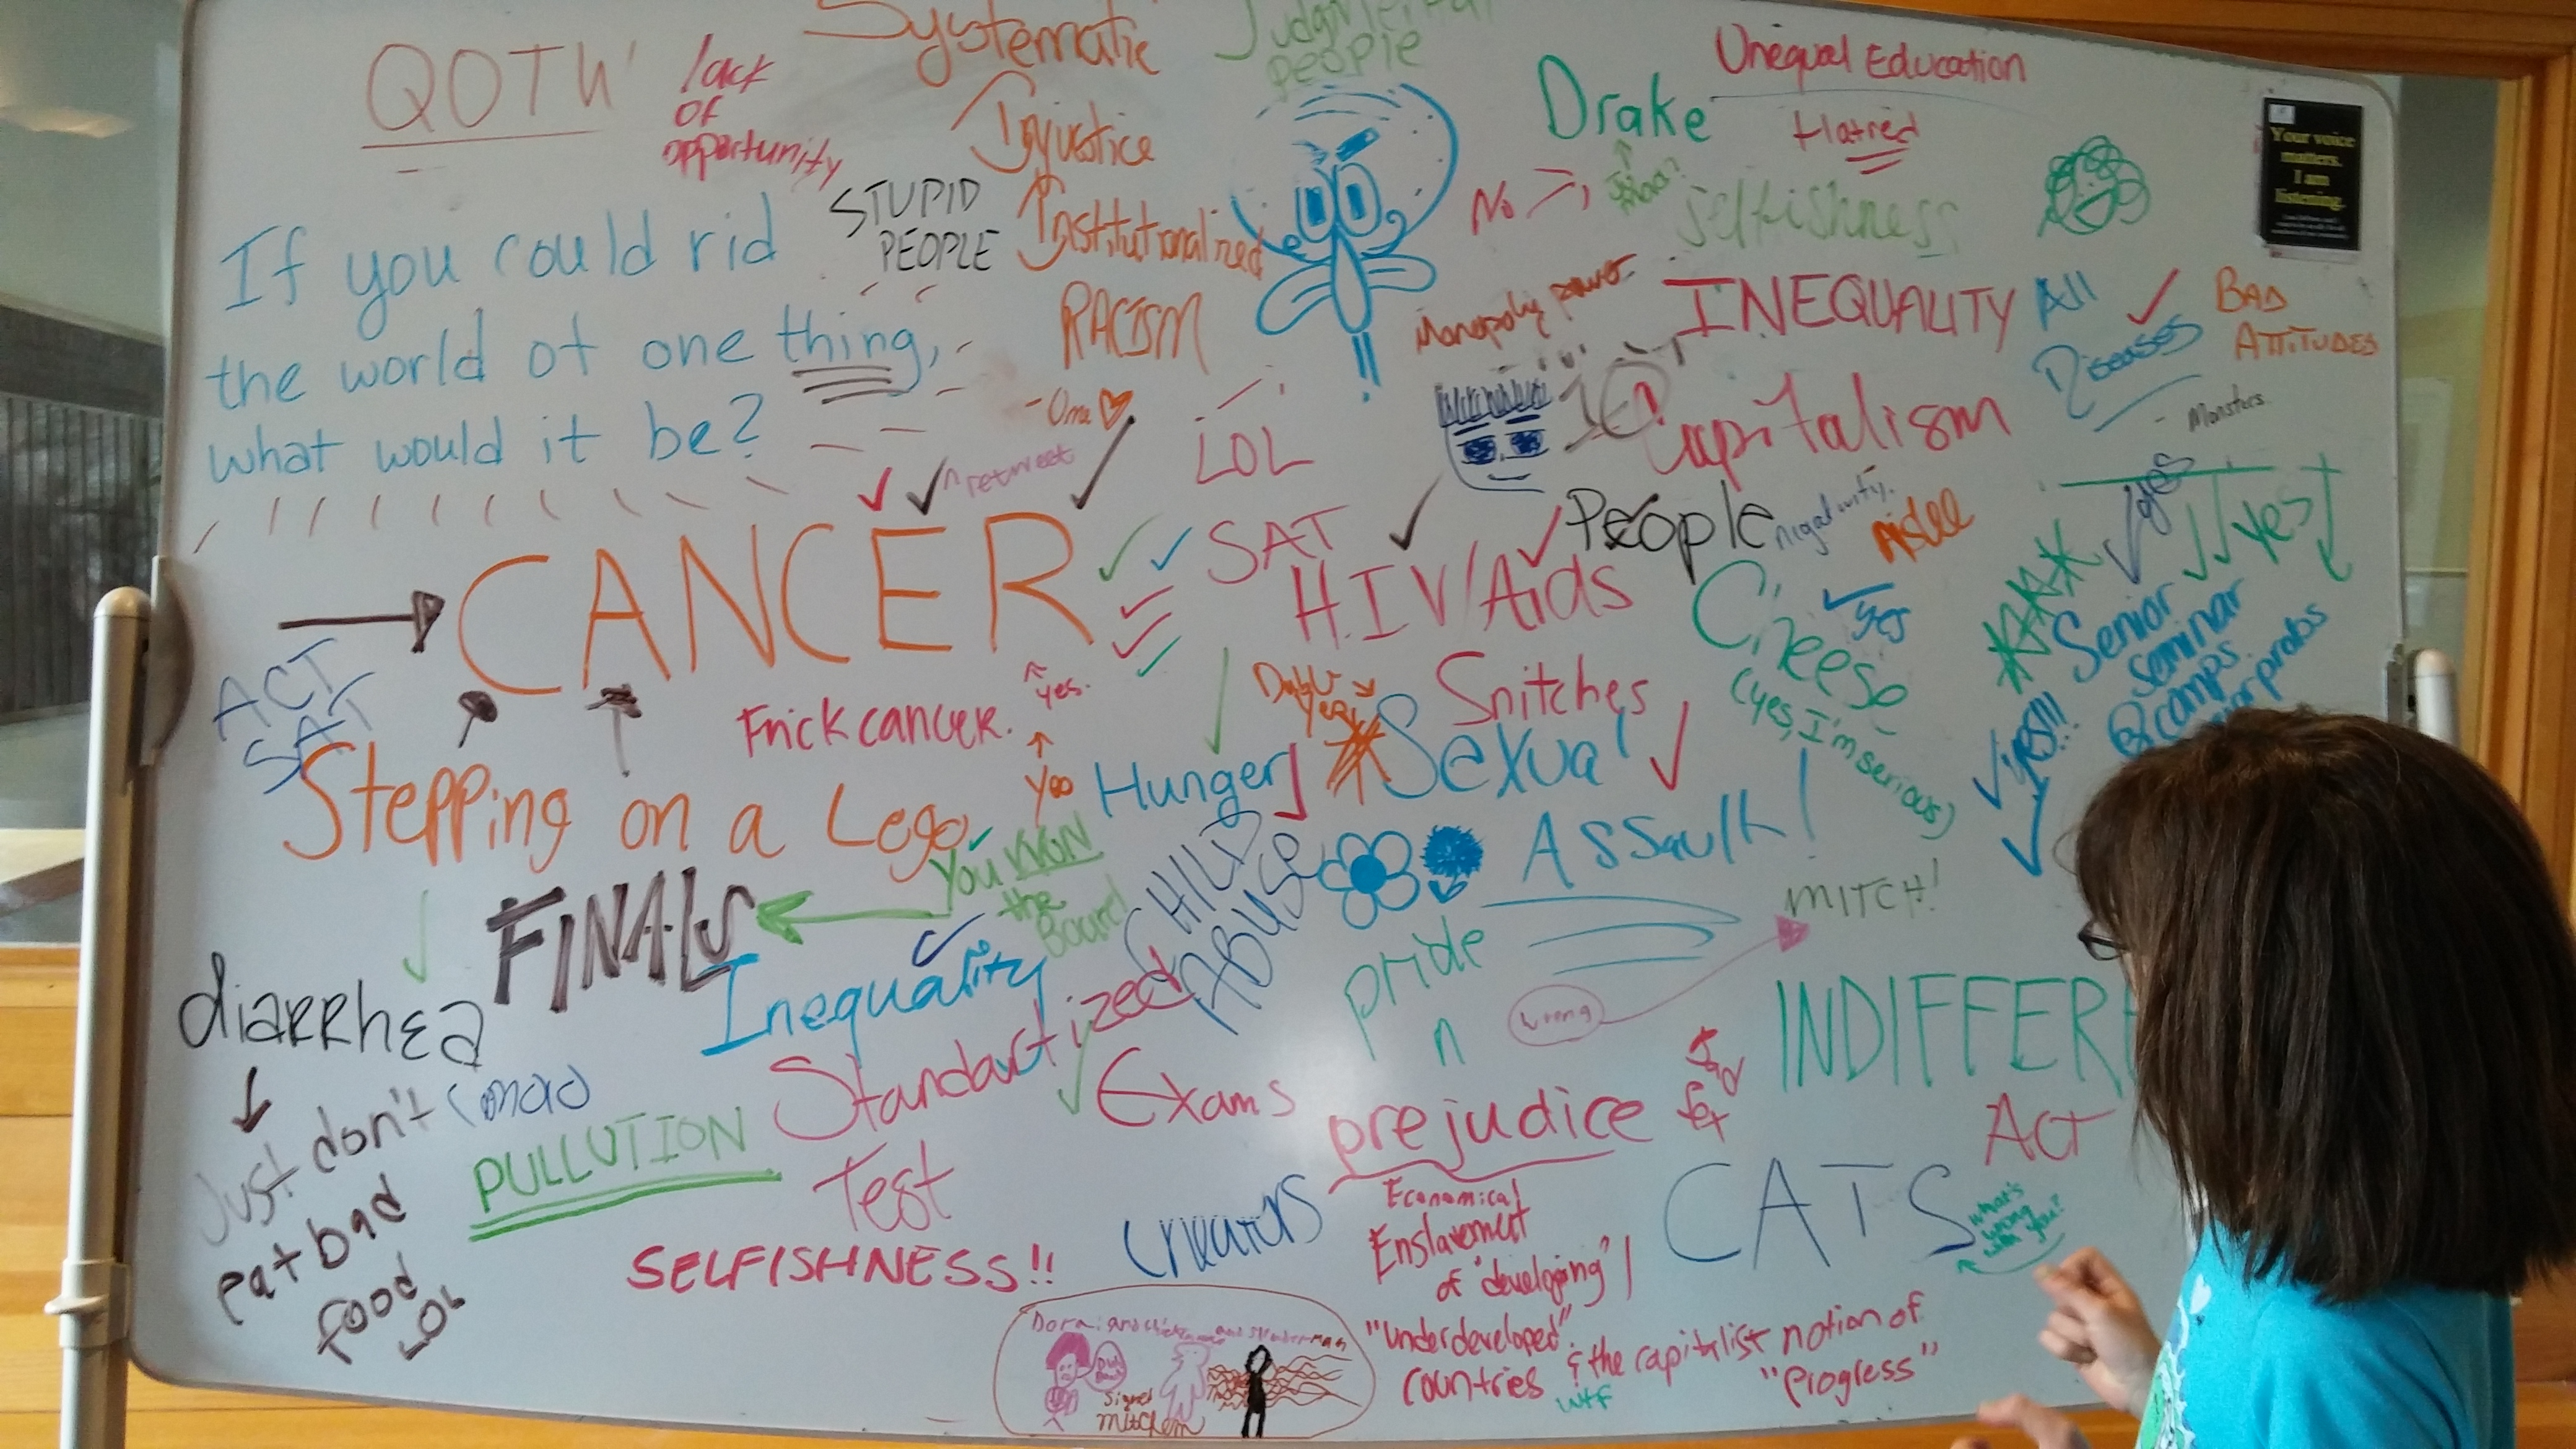 QOTW
If you could rid
the world of one thing,
what would it be?
lack
of
opportunity
Systematic
Injustice
Institutionalized
RACISM
STUPID
PEOPLE
Judgmental
people
Drake
No
Unequal Education
Hatred
selfishness
Your voice
matters.
I am
listening.
Monopoly power
INEQUALITY
All
Diseases
BAD
ATTITUDES
- Monsters
Capitalism
- One
^ retweet
LOL
SAT
CANCER
People
negativity.
HIV/Aids
Cheese
(yes, I'm serious)
yes
yes
yes
Senior
Seminar
& comps
yes!!!
ACT
SAT
Frick cancer.
^ yes.
Snitches
Stepping on a Lego
Hunger
Sexual
Assault!
You WON
the
Board
CHILD
ABUSE
FINALS
MITCH!
wrong
pride
n
prejudice
INDIFFERE
diarrhea
Just don't
eat bad
food
LOL
Inequality
Standardized
Test
Exams
PULLUTION
ACT
CATS
what's
wrong
with you?
SELFISHNESS!!
creators
Economical
Enslavement
of "developing" /
"underdeveloped"
countries
& the capitalist notion of
"Progress"
wtf
Signed
Mitchem